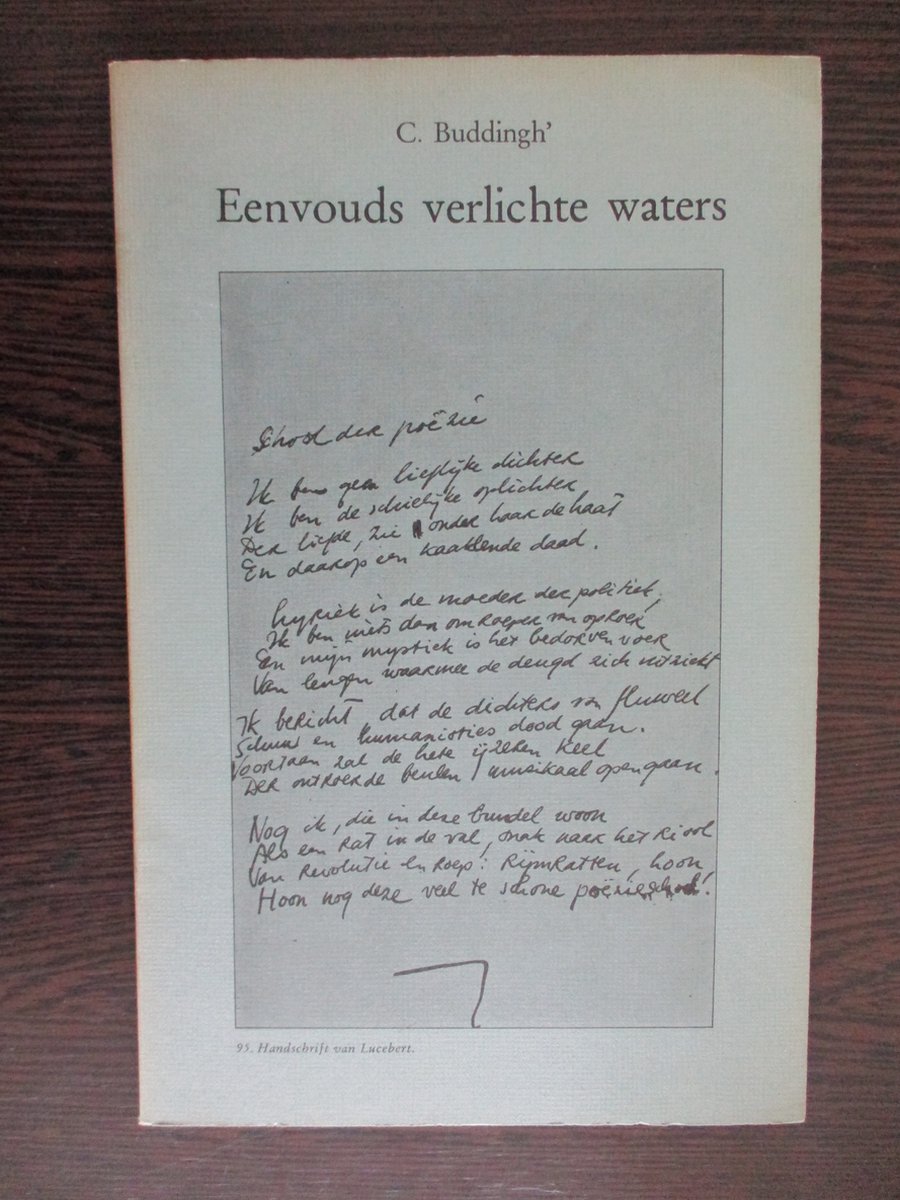 C. Buddingh’
Eenvouds verlichte waters
School der poëzie
Ik ben geen lieflijke dichter
Ik ben de schielijke oplichter
Der liefde, zie onder haar de haat
En daarop een kaaklende daad.
Lyriek is de moeder der politiek,
Ik ben niets dan omroeper van oproer
En mijn mystiek is het bedorven voer
Van leugen waarmee de deugd zich uitziekt
Ik bericht, dat de dichters van fluweel
Schuw en humanisties dood gaan.
Voortaan zal de hete ijzeren keel
Der ontroerde beulen muzikaal opengaan.
Nog ik, die in deze bundel woon
Als een rat in de val, snak naar het riool
Van revolutie en roep: rijmratten, hoon
Hoon nog deze veel te schone poëzieschool!
95. Handschrift van Lucebert.